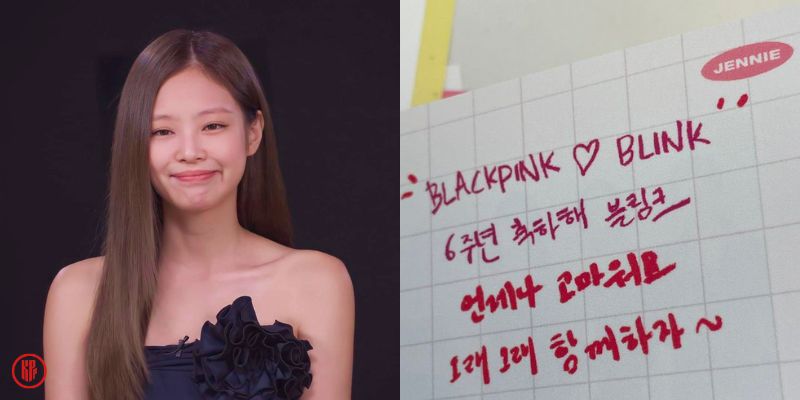 JENNIE
BLACKPINK ♡ BLINK
6주년 축하해 블링크
언제나 고마워요
오래 오래 함께하자 ~